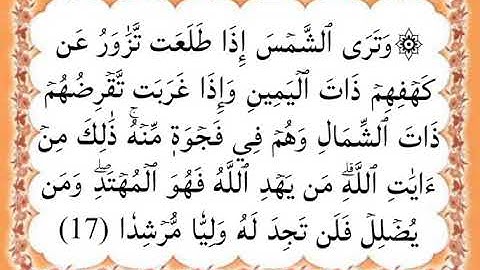 ۞وَتَرَى ٱلشَّمۡسَ إِذَا طَلَعَت تَّزَٰوَرُ عَن
كَهۡفِهِمۡ ذَاتَ ٱلۡيَمِينِ وَإِذَا غَرَبَت تَّقۡرِضُهُمۡ
ذَاتَ ٱلشِّمَالِ وَهُمۡ فِي فَجۡوَةٖ مِّنۡهُۚ ذَٰلِكَ مِنۡ
ءَايَٰتِ ٱللَّهِۗ مَن يَهۡدِ ٱللَّهُ فَهُوَ ٱلۡمُهۡتَدِۖ وَمَن
يُضۡلِلۡ فَلَن تَجِدَ لَهُۥ وَلِيّٗا مُّرۡشِدٗا (17)